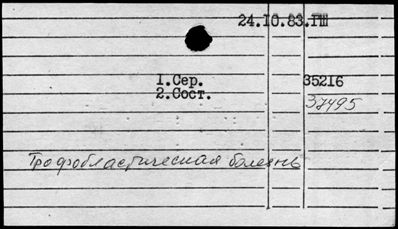 24.10.83.ГШ
1.Сер. 35216
2.Сост. 37495
Трофобластическая болезнь